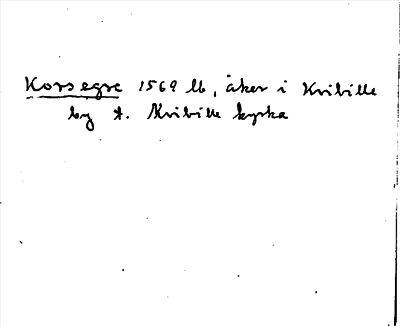 Korsegre 1569 lb, åker i Kvibille
by t. Kvibille kyrka